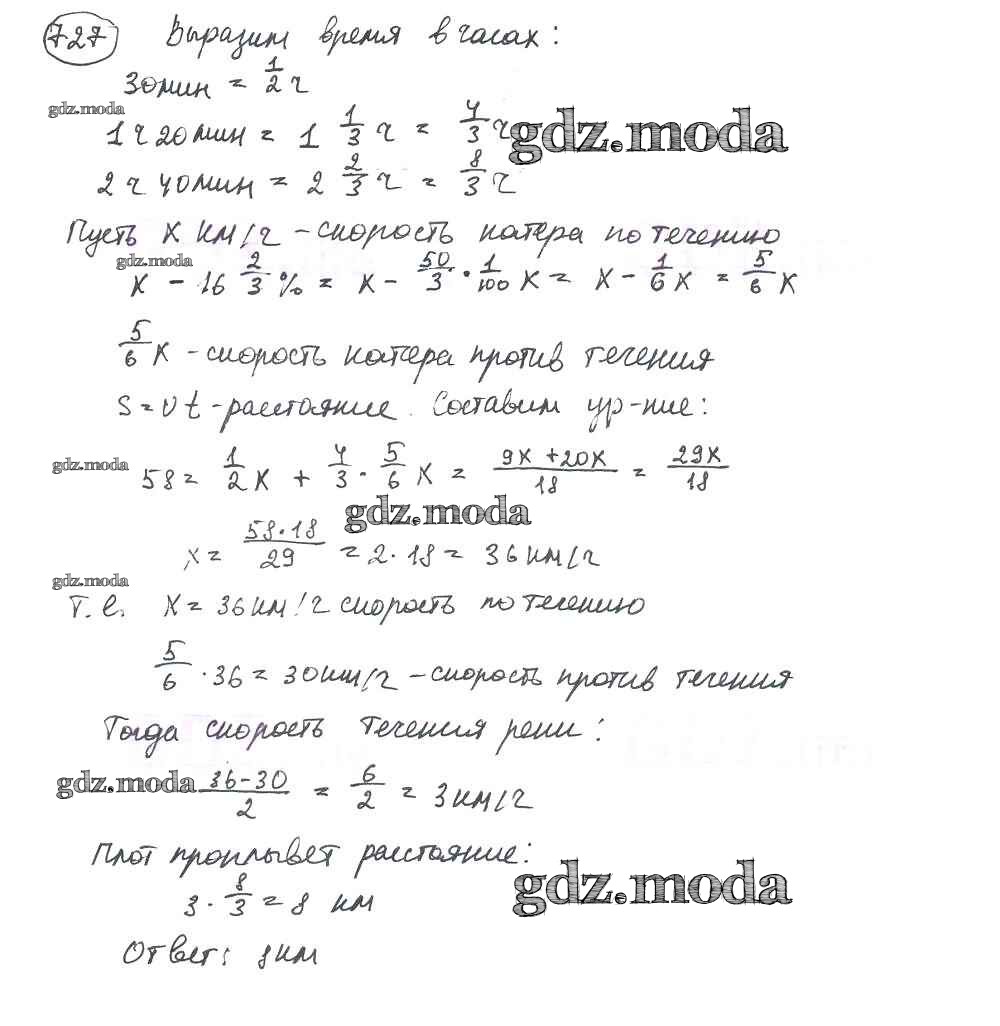 727 Выразим время в часах:
30 мин = 1/2 ч
gdz.moda
1 ч 20 мин = 1 1/3 ч = 4/3 ч gdz.moda
2 ч 40 мин = 2 2/3 ч = 8/3 ч
Пусть x км/ч - скорость катера по течению
gdz.moda
x - 16 2/3 % = x - 50/3 · 1/100 x = x - 1/6 x = 5/6 x
5/6 x - скорость катера против течения
S = υt - расстояние. Составим ур-ние:
gdz.moda 58 = 1/2 x + 4/3 · 5/6 x = (9x + 20x)/18 = 29x/18
gdz.moda
x = (58·18)/29 = 2·18 = 36 км/ч
gdz.moda
т.е. x = 36 км/ч скорость по течению
5/6 · 36 = 30 км/ч - скорость против течения
Тогда скорость течения реки:
gdz.moda (36-30)/2 = 6/2 = 3 км/ч
Плот проплывет расстояние:
gdz.moda
3 · 8/3 = 8 км
Ответ: 8 км